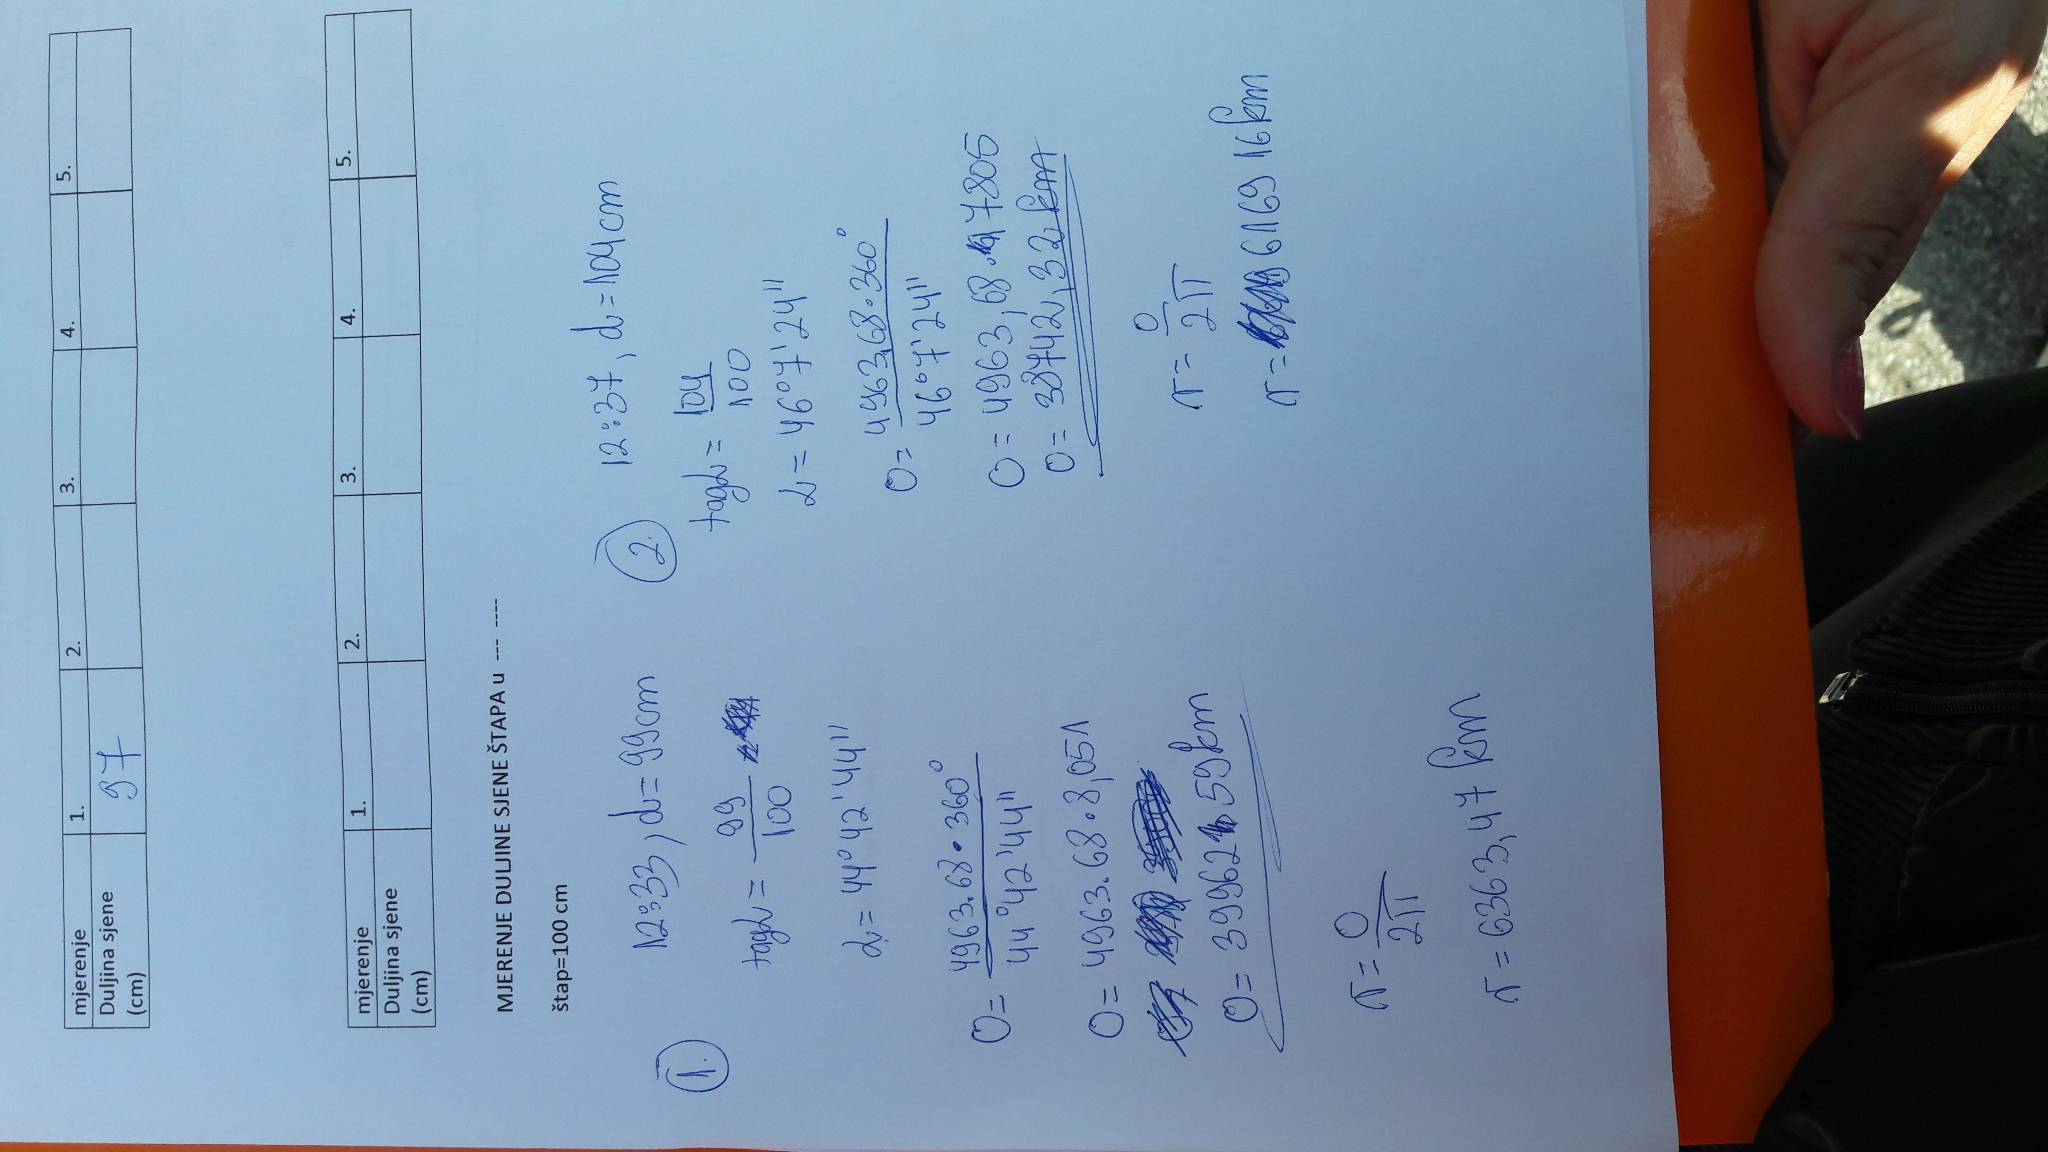 mjerenje 1. 2. 3. 4. 5.
Duljina sjene (cm) 97
mjerenje 1. 2. 3. 4. 5.
Duljina sjene (cm)
MJERENJE DULJINE SJENE ŠTAPA u --- ----
štap=100 cm
1.
12:33, d=99cm
tagα = 99/100
α = 44°42'44"
O = 4963.68·360°/44°42'44"
O = 4963.68·8,051
O = 39962,59km
r = O/2π
r = 6363,47 km
2.
12:37, d=104cm
tagα = 104/100
α = 46°7'24"
O = 4963,68·360°/46°7'24"
O = 4963,68·7805
O = 38742,32km
r = O/2π
r = 6169 16km